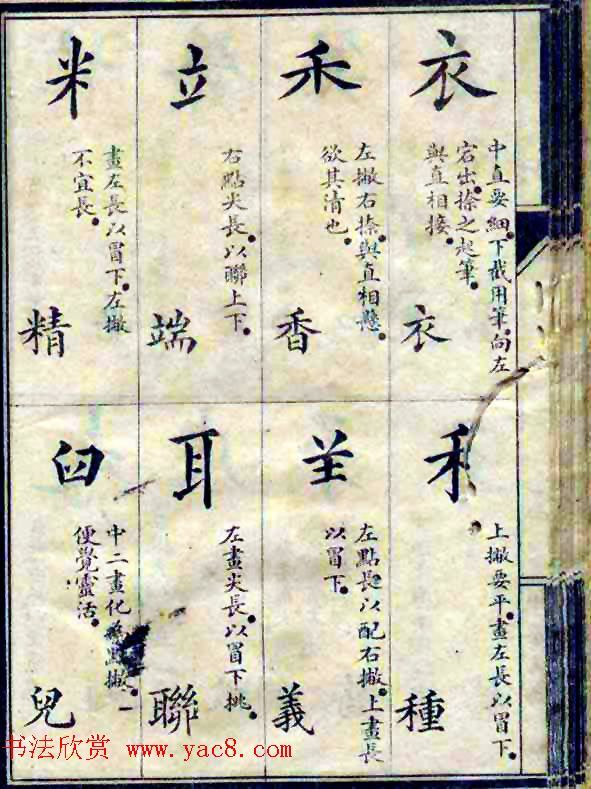 衣
中直要細。下截用筆。向左
宕出。捺之起筆。
與直相接。
衣
禾
左撇右捺。與直相懸。
欲其清也。
香
立
右點尖長。以聯上下。
端
米
畫左長以冒下。左撇
不宜長。
精
禾
上撇要平。畫左長以冒下。
種
左點長以配右撇。上畫長
以冒下。
義
耳
左畫尖長。以冒下挑。
聯
臼
中二畫化為點撇。
便覺靈活。
兒
书法欣赏 www.yac8.com